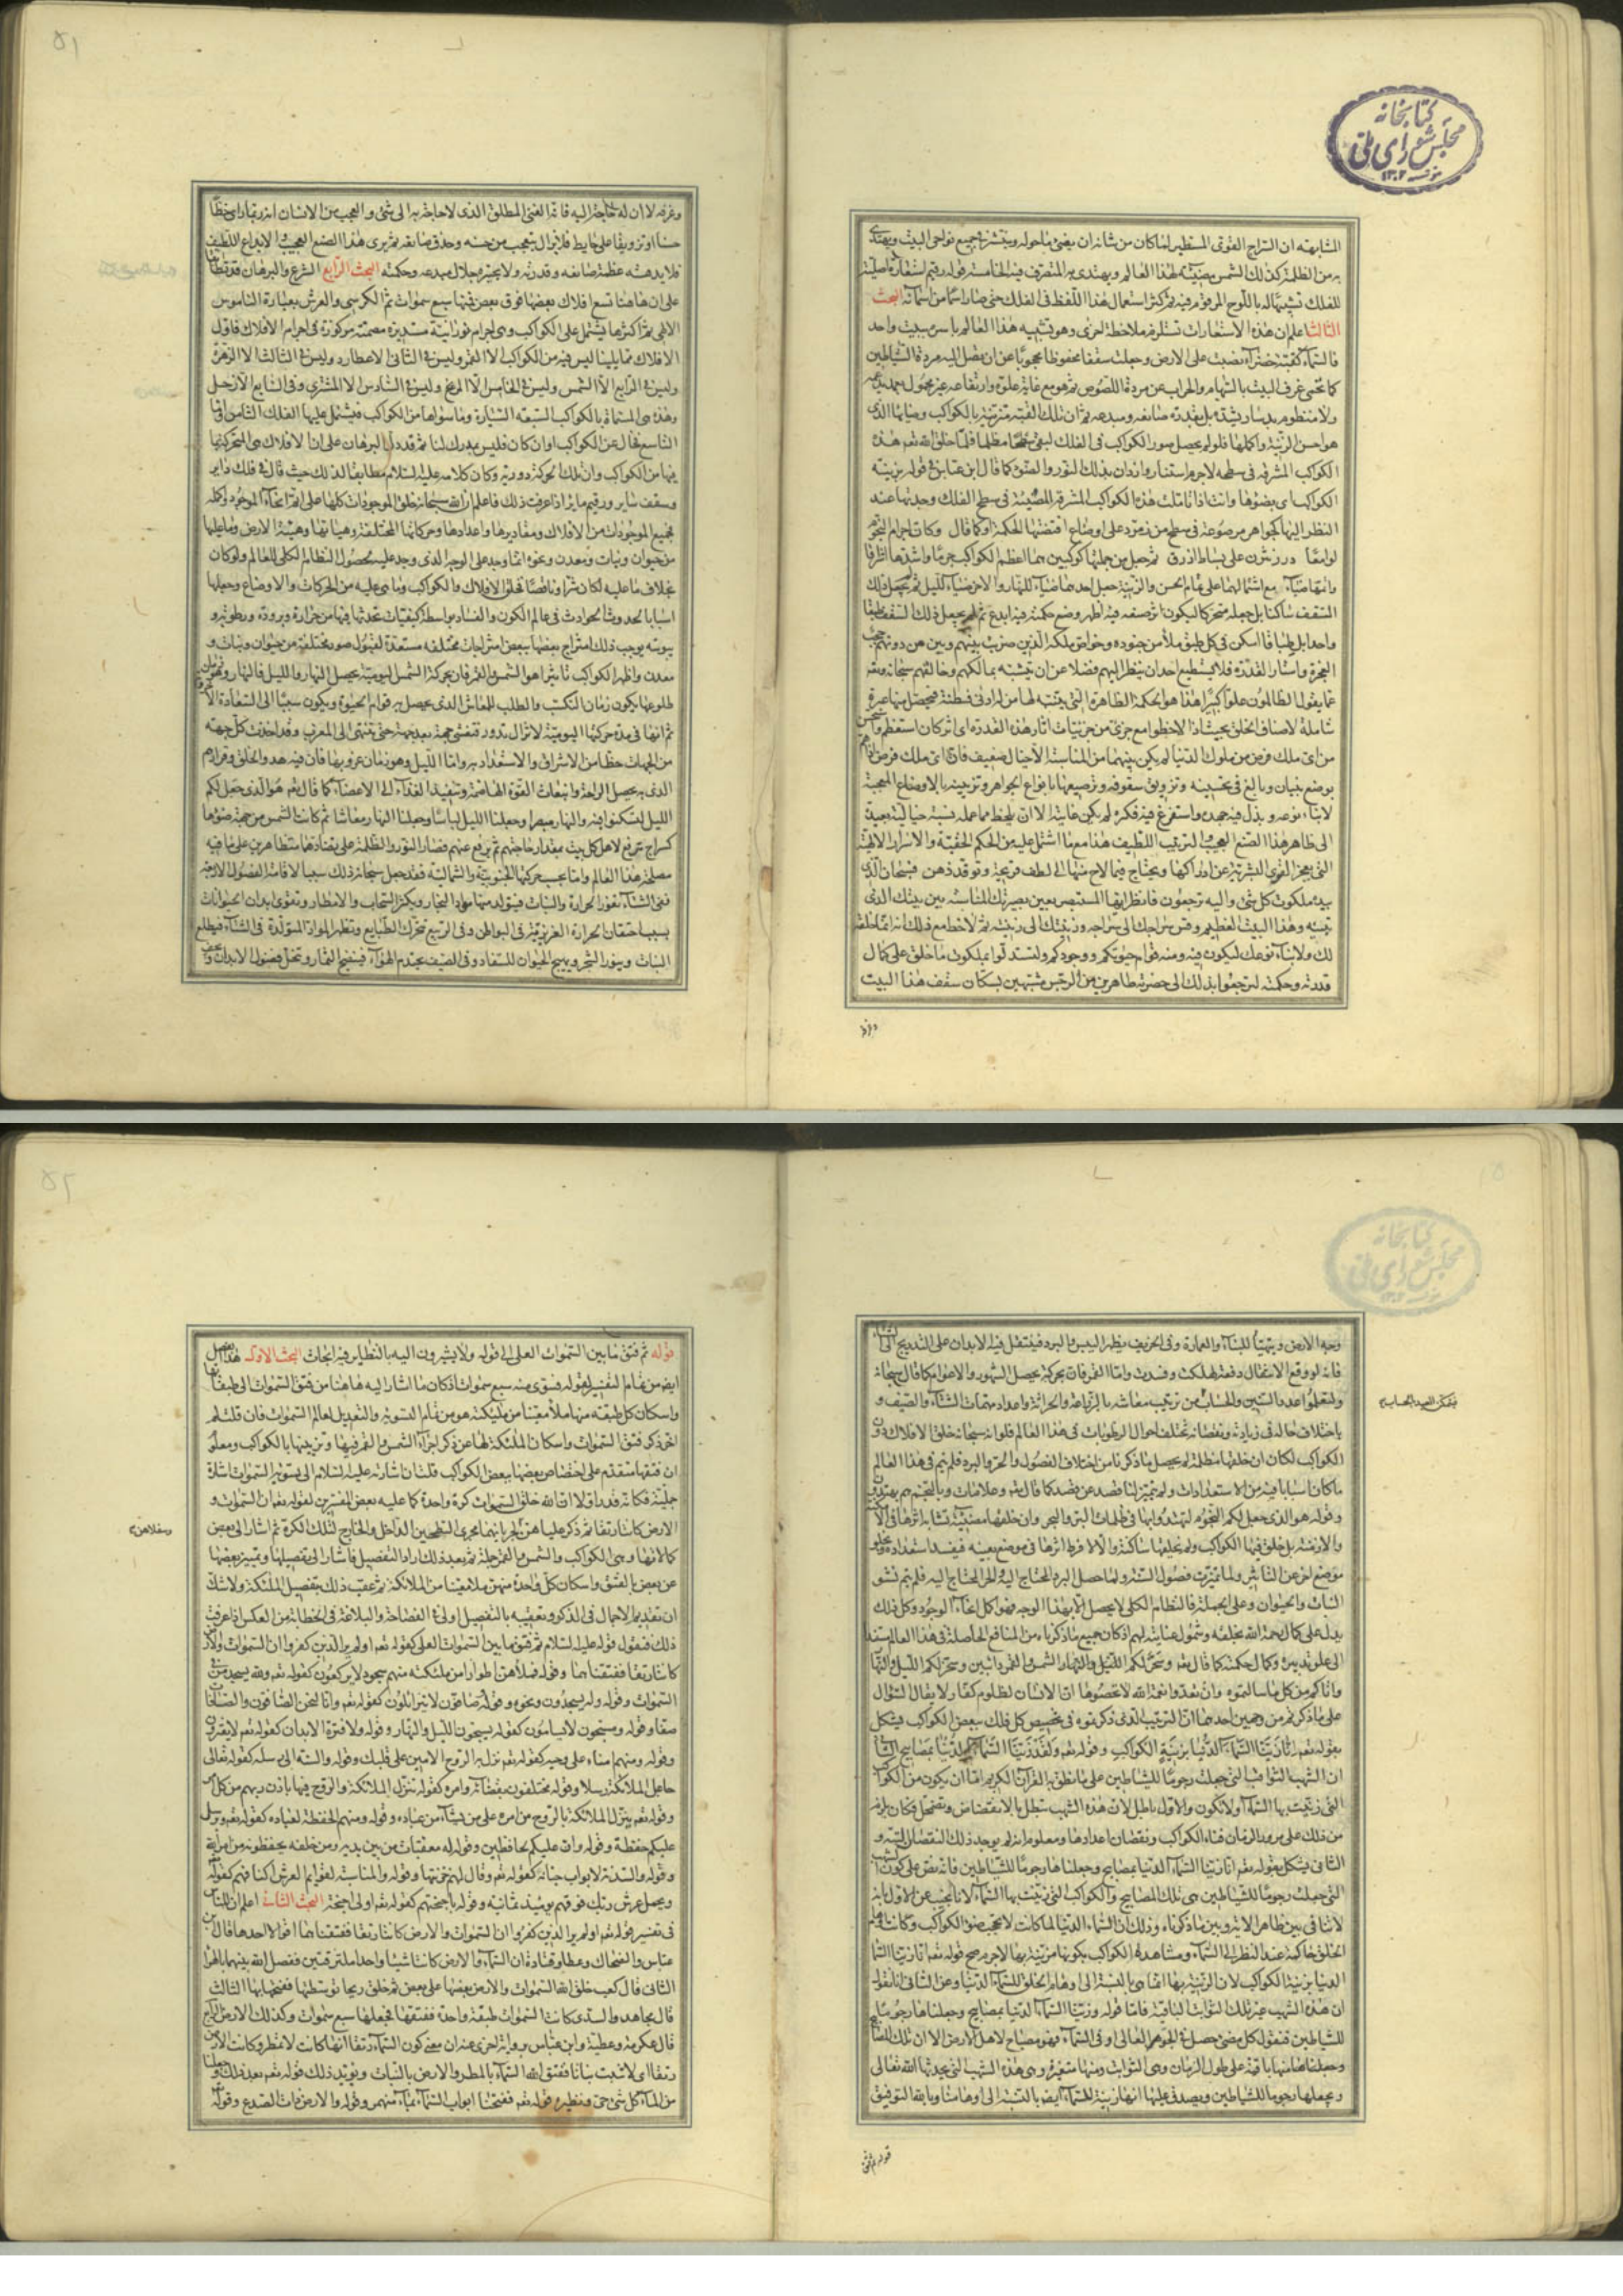 كتابخانه
مجلس شورای ملی
المشابهة ان السراج القوی المستطیر لما کان من شانه ان یضئ ما حوله وینتشر فی جمیع نواحی البیت ویهتدی
به من الظلمة کذلک الشمس مضیئة لهذا العالم ویهتدی به المتصرف فیه الخامسة قوله رقیم استعارة اصلیة
للفلک تشبیها له باللوح المرقوم فیه ثم کثر استعمال هذا اللفظ فی الفلک حتی صار اسما من اسمائه البحث
الثالث اعلم ان هذه الاستعارات تستلزم ملاحظة اخری وهو تشبیه هذا العالم باسره ببیت واحد
فالسماء کقبة خضراء نصبت علی الارض وجعلت سقفا محفوظا محجوبا عن ان یصل الیه مردة الشیاطین
کما تحمی غرف البیت بالسهام والحراب عن مردة اللصوص ثم هو مع غایة علوه وارتفاعه غیر محمول بعمد یدعمه
ولا منظوم بدسار ینتظمه بل بقدرة صانعه ومبدعه ثم ان تلک القبة متزینة بالکواکب وضیائها الذی
هو احسن الزینة واکملها فلو لم یحصل صور الکواکب فی الفلک لبقی سطحا مظلما فلما خلق الله تعم هذه
الکواکب المشرقة فی سطحه لاجرم استنار وازدان بذلک النور والضوء کما قال ابن عباس فی قوله بزینة
الکواکب ای بضوئها وانت اذا تاملت هذه الکواکب المشرقة المضیئة فی سطح الفلک وجدتها عند
النظر الیها کجواهر مرصوعة فی سطح من زمرد علی اوضاع اقتضتها الحکمة او کما قال وکان اجرام النجوم
لوامعا درر نثرن علی بساط ازرق ثم جعل من جملتها کوکبین هما اعظم الکواکب جرما واشدها اشراقا
واتمها ضیاء مع اشتمالهما علی تمام الحسن والزینة جعل احدهما ضیاء للنهار والاخر ضیاء للیل ثم لم یجعل ذلک
السقف ساکنا بل جعله متحرکا لیکون اثر صنعه فیه اظهر وضع حکمته فیه ابدع ثم لم یجعل ذلک السقف طبقا
واحدا بل طباقا اسکن فی کل طبق ملأ من جنوده وخواص ملکه الذین ضرب بینهم وبین من دونهم حجب
العزة واستار القدرة فلا یستطیع احد ان ینظر الیهم فضلا عن ان یتشبه بمالکهم وخالقهم سبحانه وتعم
عما یقول الظالمون علوا کبیرا هذا هو الحکمة الظاهرة التی یتنبه لها من له ادنی فطنة فیحصل منها عبرة
شاملة لاصناف الخلق بحیث اذا لاحظوا مع جزئ من جزئیات اثار هذه القدرة ای اثر کان استعظم واستحسن
من ای ملک فرض من ملوک الدنیا لم یکن بینهما من المناسبة الا خیال ضعیف فان ای ملک فرض اذا هم
بوضع بنیان وبالغ فی تحسینه وتزویق سقوفه وترصیعها بانواع الجواهر وتزیینه بالاوضاع المعجبة
لابناء نوعه وبذل فیه جهده واستفرغ فیه فکره لم یکن غایته الا ان یلحظ مما عمله نسبة خیالیة بعیدة
الی ظاهر هذا الصنع العجیب والترتیب اللطیف هذا مع ما اشتمل علیه من الحکم الخفیة والاسرار الالهیة
التی یعجز القوی البشریة عن ادراکها ویحتاج فیما لاح منها الی لطف قریحة وتوقد ذهن فسبحان الذی
بیده ملکوت کل شئ والیه ترجعون فانظر ایها المستبصر بعین بصیرتک المناسبة بین بیتک الذی
تبنیه وهذا البیت العظیم وقس سراجک الی سراجه وزینتک الی زینته ثم لاحظ مع ذلک انه انما خلقه
لک ولابناء نوعک لیکون فیه ومنه قوام حیوتکم ووجودکم ولتستدلوا بملکوت ما خلق علی کمال
قدرته وحکمته لترجعوا بذلک الی حضرته طاهرین من الرجس متشبهین بسکان سقف هذا البیت
وغرفه
٥١
وغرفه لا ان له حاجة الیه فانه الغنی المطلق الذی لا حاجة به الی شئ والعجب من الانسان انه ربما رای خطا
حسنا او تزویقا علی حایط فلا یزال یتعجب من حسنه وحذق صانعه ثم یری هذا الصنع العجیب والابداع اللطیف
فلا یدهشه عظمة صانعه وقدرته ولا یحیره جلال مبدعه وحکمته البحث الرابع الشرع والبرهان قد تطابقا
علی ان هاهنا تسع افلاک بعضها فوق بعض فمنها سبع سموات ثم الکرسی والعرش بعبارة الناموس
الالهی ثم اکثرها یشتمل علی الکواکب وهی اجرام نورانیة مستدیرة مصمتة مرکوزة فی اجرام الافلاک فاول
الافلاک مما یلینا لیس فیه من الکواکب الا القمر ولیس فی الثانی الا عطارد ولیس فی الثالث الا الزهرة
ولیس فی الرابع الا الشمس ولیس فی الخامس الا المریخ ولیس فی السادس الا المشتری وفی السابع الا زحل
وهذه هی المسماة بالکواکب السبعة السیارة وما سواها من الکواکب فیشتمل علیها الفلک الثامن اما
التاسع فخال عن الکواکب وان کان فلیس بمدرک لنا ثم قد دل البرهان علی ان الافلاک هی المتحرکة بما
فیها من الکواکب وان تلک الحرکة دوریة وکان کلامه علیه السلام مطابقا لذلک حیث قال فی فلک دایر
وسقف سایر ورقیم مایر اذا عرفت ذلک فاعلم ان الله سبحانه خلق الموجودات کلها علی اتم انحاء الوجود واکمله
فجمیع الموجودات من الافلاک ومقادیرها واعدادها وحرکاتها المختلفة وهیاتها وهیئة الارض وما علیها
من حیوان ونبات ومعدن ونحوه انما وجد علی الوجه الذی وجد علیه لحصول النظام الکلی للعالم ولو کان
بخلاف ما علیه لکان شرا وناقصا فخلق الافلاک والکواکب وما هی علیه من الحرکات والاوضاع وجعلها
اسبابا لحدوث الحوادث فی عالم الکون والفساد بواسطة کیفیات تحدثها فیها من حرارة وبرودة ورطوبة و
یبوسة یوجب ذلک امتزاج بعضها ببعض امتزاجات مختلفة مستعدة لقبول صور مختلفة من حیوان ونبات و
معدن واظهر الکواکب تاثیرا هو الشمس والقمر فان بحرکة الشمس الیومیة یحصل النهار واللیل فالنهار وهو زمان
طلوعها یکون زمان التکسب والطلب للمعاش الذی یحصل به قوام الحیوة ویکون سببا الی السعادة الاخرویة
ثم انها فی مدة حرکتها الیومیة لا تزال تدور فتغشی جهة بعد جهة حتی تنتهی الی المغرب وقد اخذت کل جهة
من الجهات حظا من الاشراق والاستعداد به واما اللیل وهو زمان غروبها فان فیه هدوء الخلق وقرارهم
الذی به یحصل الراحة وانبعاث القوة الهاضمة وتنفیذ الغذاء الی الاعضاء کما قال تعم هو الذی جعل لکم
اللیل لتسکنوا فیه والنهار مبصرا وجعلنا اللیل لباسا وجعلنا النهار معاشا ثم کانت الشمس من جهة ضوئها
کسراج یرفع لاهل کل بیت بمقدار حاجتهم ثم یرفع عنهم فصار النور والظلمة علی تضادهما متظاهرین علی ما فیه
مصلحة هذا العالم واما بحسب حرکتها الجنوبیة والشمالیة فقد جعل سبحانه ذلک سببا لاقامة الفصول الاربعة
ففی الشتاء تغور الحرارة والنبات فیتولد منها مواد الثمار ویکثر السحاب والامطار وتقوی ابدان الحیوانات
بسبب احتقان الحرارة الغریزیة فی البواطن وفی الربیع تتحرک الطبایع وتظهر المواد المتولدة فی الشتاء فیطلع
النبات وینور الشجر ویهیج الحیوان للسفاد وفی الصیف یحتدم الهواء فینضج الثمار وتنحل فضول الابدان ویجف
كتابخانه
مجلس شورای ملی
وجه الارض ویتهیأ للبناء والعمارة وفی الخریف یظهر الیبس والبرد فینتقل فیه الابدان علی التدریج الی الشتاء
فانه لو وقع الانتقال دفعة لهلکت وفسدت واما القمر فان بحرکته یحصل الشهور والاعوام کما قال سبحانه
ولتعلموا عدد السنین والحساب من ترتیب معاشه بالزراعة والحراثة واعداد مهمات الشتاء والصیف و
باختلاف حاله فی زیادته ونقصانه تختلف احوال الرطوبات فی هذا العالم فلو انه سبحانه خلق الافلاک دون
الکواکب لکان ان خلقها مظلمة لم یحصل ما ذکرنا من اختلاف الفصول والحر والبرد فلم یتم فی هذا العالم
ما کان اسبابا فیه من الاستعدادات ولم تتمیز لنا فصد عن فصد کما قال تعم وعلامات وبالنجم هم یهتدون
وقوله هو الذی جعل لکم النجوم لتهتدوا بها فی ظلمات البر والبحر وان خلقها مضیئة تشابه اثرها فی الامکنة
والازمنة بل خلق فیها الکواکب ولم یخلقها ساکنة والا لافرط اثرها فی موضع بعینه فیفسد استعداده ویخلو
موضع اخر عن التاثیر ولما تمیزت فصول السنة ولما حصل البرد المحتاج الیه والحر المحتاج الیه فلم یتم نشو
النبات والحیوان وعلی الجملة فالنظام الکلی لا یحصل الا بهذا الوجه فهو اکمل انحاء الوجود وکل ذلک
یدل علی کمال رحمة الله بخلقه وشمول عنایته لهم اذ کان جمیع ما ذکرناه من المنافع الحاصلة فی هذا العالم مستندا
الی علو تدبیره وکمال حکمته کما قال تعم وسخر لکم اللیل والنهار الشمس والقمر دائبین وسخر لکم اللیل والنهار
واتاکم من کل ما سالتموه وان تعدوا نعمة الله لا تحصوها ان الانسان لظلوم کفار لا یقال السؤال
علی ما ذکرتم من وجهین احدهما ان الترتیب الذی ذکرتموه فی تخصیص کل فلک ببعض الکواکب یشکل
بقوله تعم انا زینا السماء الدنیا بزینة الکواکب وقوله تعم ولقد زینا السماء الدنیا بمصابیح الثانی
ان الشهب الثواقب التی جعلت رجوما للشیاطین علی ما نطق به القرآن الکریم اما ان یکون من الکواکب
التی زینت بها السماء او لا تکون والاول باطل لان هذه الشهب تبطل بالانقضاض وتضمحل فکان یلزم
من ذلک علی مرور الزمان فناء الکواکب ونقصان اعدادها ومعلوم انه لم یوجد ذلک النقصان البتة و
الثانی یشکل بقوله تعم انا زینا السماء الدنیا بمصابیح وجعلناها رجوما للشیاطین فانه نص علی کون الشهب
التی جعلت رجوما للشیاطین هی تلک المصابیح والکواکب التی زینت بها السماء لانا نجیب عن الاول بانه
لا تنافی بین ظاهر الآیة وبین ما ذکرناه وذلک ان السماء الدنیا لما کانت لا تحجب ضوء الکواکب وکانت اوهام
الخلق حاکمة عند النظر الی السماء ومشاهدة الکواکب بکونها مزینة بها لاجرم صح قوله تعم انا زینا السماء
الدنیا بزینة الکواکب لان الزینة بها انما هی بالنسبة الی اوهام الخلق للسماء الدنیا وعن الثانی انا نقول
ان هذه الشهب غیر تلک الثوابت الباقیة فاما قوله وزینا السماء الدنیا بمصابیح وجعلناها رجوما
للشیاطین فنقول کل مضئ حصل فی الجو العالی او فی السماء فهو مصباح لاهل الارض الا ان تلک المصابیح
وجعلناها منها باقیة علی طول الزمان وهی الثوابت ومنها متغیرة وهی هذه الشهب التی یحدثها الله تعالی
ویجعلها رجوما للشیاطین ویصدق علیها انها زینة للسماء ایضا بالنسبة الی اوهامنا وبالله التوفیق
قوله ثم فتق
٥٢
قوله ثم فتق ما بین السموات العلی الی قوله ولا یشیرون الیه بالنظایر فیه ابحاث البحث الاول هذا الفصل
ایضا من تمام التفسیر لقوله فسوی منه سبع سموات اذ کان ما اشار الیه هاهنا من فتق السموات الی طبقاتها
واسکان کل طبقة منها ملأ معینا من ملئکته هو من تمام التسویة والتعدیل لعالم السموات فان قلت لم
اخر ذکر فتق السموات واسکان الملئکة لها عن ذکر اجراء الشمس والقمر فیها وتزیینها بالکواکب ومعلوم
ان فتقها متقدم علی اختصاص بعضها ببعض الکواکب قلت ان اشارته علیه السلام الی تسویة السموات اشارة
جملیة فکانه قدر اولا ان الله خلق السموات کرة واحدة کما علیه بعض المفسرین لقوله تعم ان السموات و
الارض کانتا رتقا ثم ذکر علیاهن
وسفلاهن
لجریانهما مجری السطحین الداخل والخارج لتلک الکرة ثم اشار الی بعض
کمالاتها وهی الکواکب والشمس والقمر جملة ثم بعد ذلک اراد التفصیل فاشار الی تفصیلها وتمییز بعضها
عن بعض بالفتق واسکان کل واحدة منهن ملأ معینا من الملائکة ثم عقب ذلک بتفصیل الملئکة ولا شک
ان تقدیم الاجمال فی الذکر وتعقیبه بالتفصیل اولی فی الفصاحة والبلاغة فی الخطابة من العکس اذا عرفت
ذلک فنقول قوله علیه السلام ثم فتق ما بین السموات العلی کقوله تعم اولم یر الذین کفروا ان السموات والارض
کانتا رتقا ففتقناهما وقوله فملأهن اطوارا من ملئکته منهم سجود لا یرکعون کقوله تعم ولله یسجد من فی
السموات وقوله وله یسجدون ونحوه وقوله صافون لا یتزایلون کقوله تعم وانا لنحن الصافون والصافات
صفا وقوله ومسبحون لا یسامون کقوله یسبحون اللیل والنهار وقوله ولا فترة الابدان کقوله تعم لا یفترون
وقوله ومنهم امناء علی وحیه کقوله تعم نزل به الروح الامین علی قلبک وقوله والسنة الی رسله کقوله تعالی
جاعل الملائکة رسلا وقوله مختلفون بقضائه وامره کقوله تنزل الملائکة والروح فیها باذن ربهم من کل امر
وقوله تعم ینزل الملائکة بالروح من امره علی من یشاء من عباده وقوله ومنهم الحفظة لعباده کقوله تعم ویرسل
علیکم حفظة وقوله وان علیکم لحافظین وقوله له معقبات من بین یدیه ومن خلفه یحفظونه من امر الله
وقوله والسدنة لابواب جنانه کقوله تعم وقال لهم خزنتها وقوله والمناسبة لقوائم العرش اکتافهم کقوله
ویحمل عرش ربک فوقهم یومئذ ثمانیة وقوله باجنحتهم کقوله تعم اولی اجنحة البحث الثانی اعلم ان للناس
فی تفسیر قوله تعم اولم یر الذین کفروا ان السموات والارض کانتا رتقا ففتقناهما اقوالا احدها قال ابن
عباس والضحاک وعطا وقتادة ان السماء والارض کانتا شیئا واحدا ملتزقتین ففصل الله بینهما بالهواء
الثانی قال کعب خلق الله السموات والارض بعضها علی بعض ثم خلق ریحا توسطها ففتحها بها الثالث
قال مجاهد والسدی کانت السموات طبقة واحدة ففتقها فجعلها سبع سموات وکذلک الارض الرابع
قال عکرمة وعطیة وابن عباس بروایة اخری عنه ان معنی کون السماء رتقا انها کانت لا تمطر وکانت الارض
رتقا ای لا تنبت نباتا ففتق الله السماء بالمطر والارض بالنبات ویؤید ذلک قوله تعم بعد ذلک وجعلنا
من الماء کل شئ حی ونظیره قوله تعم ففتحنا ابواب السماء بماء منهمر وقوله والارض ذات الصدع وقوله